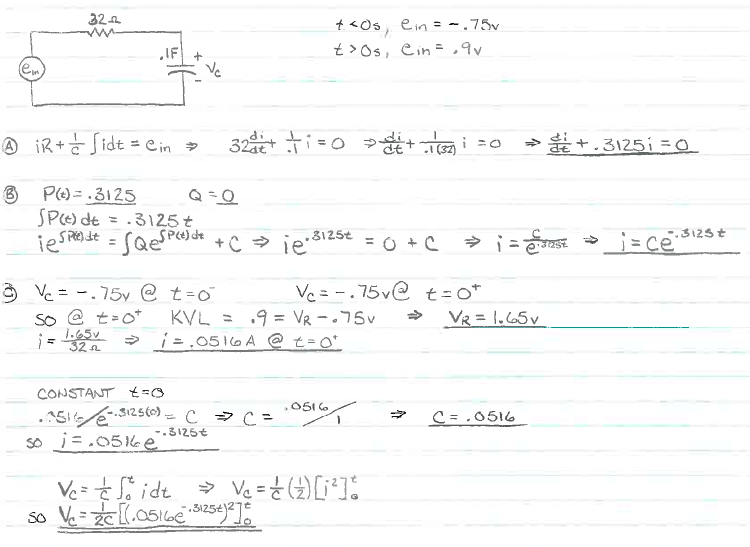 32Ω
t<0s, ein = -.75v
t>0s, ein = .9v
.1F
+
ein
Vc
-
Ⓐ iR + 1/C ∫idt = ein ⇒ 32 di/dt + 1/.1 i = 0 ⇒ di/dt + 1/.1(32) i = 0 ⇒ di/dt + .3125i = 0
Ⓑ P(t) = .3125 Q = 0
∫P(t) dt = .3125t
ie^∫P(t)dt = ∫Qe^∫P(t)dt + C ⇒ ie^.3125t = 0 + C ⇒ i = C/e^.3125t ⇒ i = Ce^-.3125t
Ⓒ Vc = -.75v @ t=0⁻ Vc = -.75v @ t=0⁺
SO @ t=0⁺ KVL = .9 = VR - .75v ⇒ VR = 1.65v
i = 1.65v/32Ω ⇒ i = .0516A @ t=0⁺
CONSTANT t=0
.0516/e^-.3125(0) = C ⇒ C = .0516/1 ⇒ C = .0516
so i = .0516e^-.3125t
Vc = 1/C ∫₀ᵗ idt ⇒ Vc = 1/C (1/2) [i²]₀ᵗ
so Vc = 1/2C [(.0516e^-.3125t)²]₀ᵗ